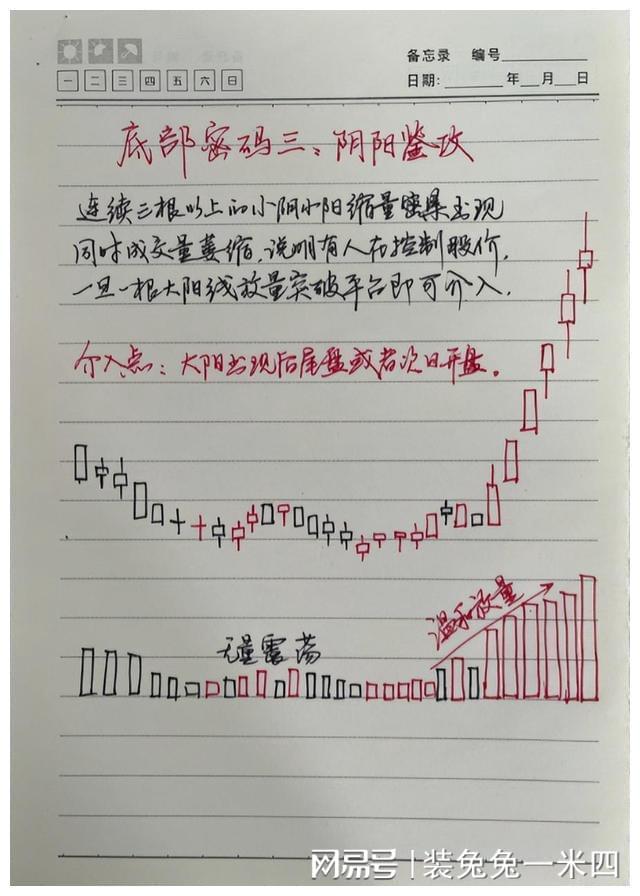 备忘录 编号
一 二 三 四 五 六 日
日期: 年 月 日
底部密码三：阴阳鉴攻
连续三根以上的小阴小阳缩量密集出现
同时成交量萎缩，说明有人在控制股价，
一旦一根大阳线放量突破平台即可介入．
介入点：大阳出现后尾盘或者次日开盘。
温和放量
无量震荡
网易号 | 装兔兔一米四